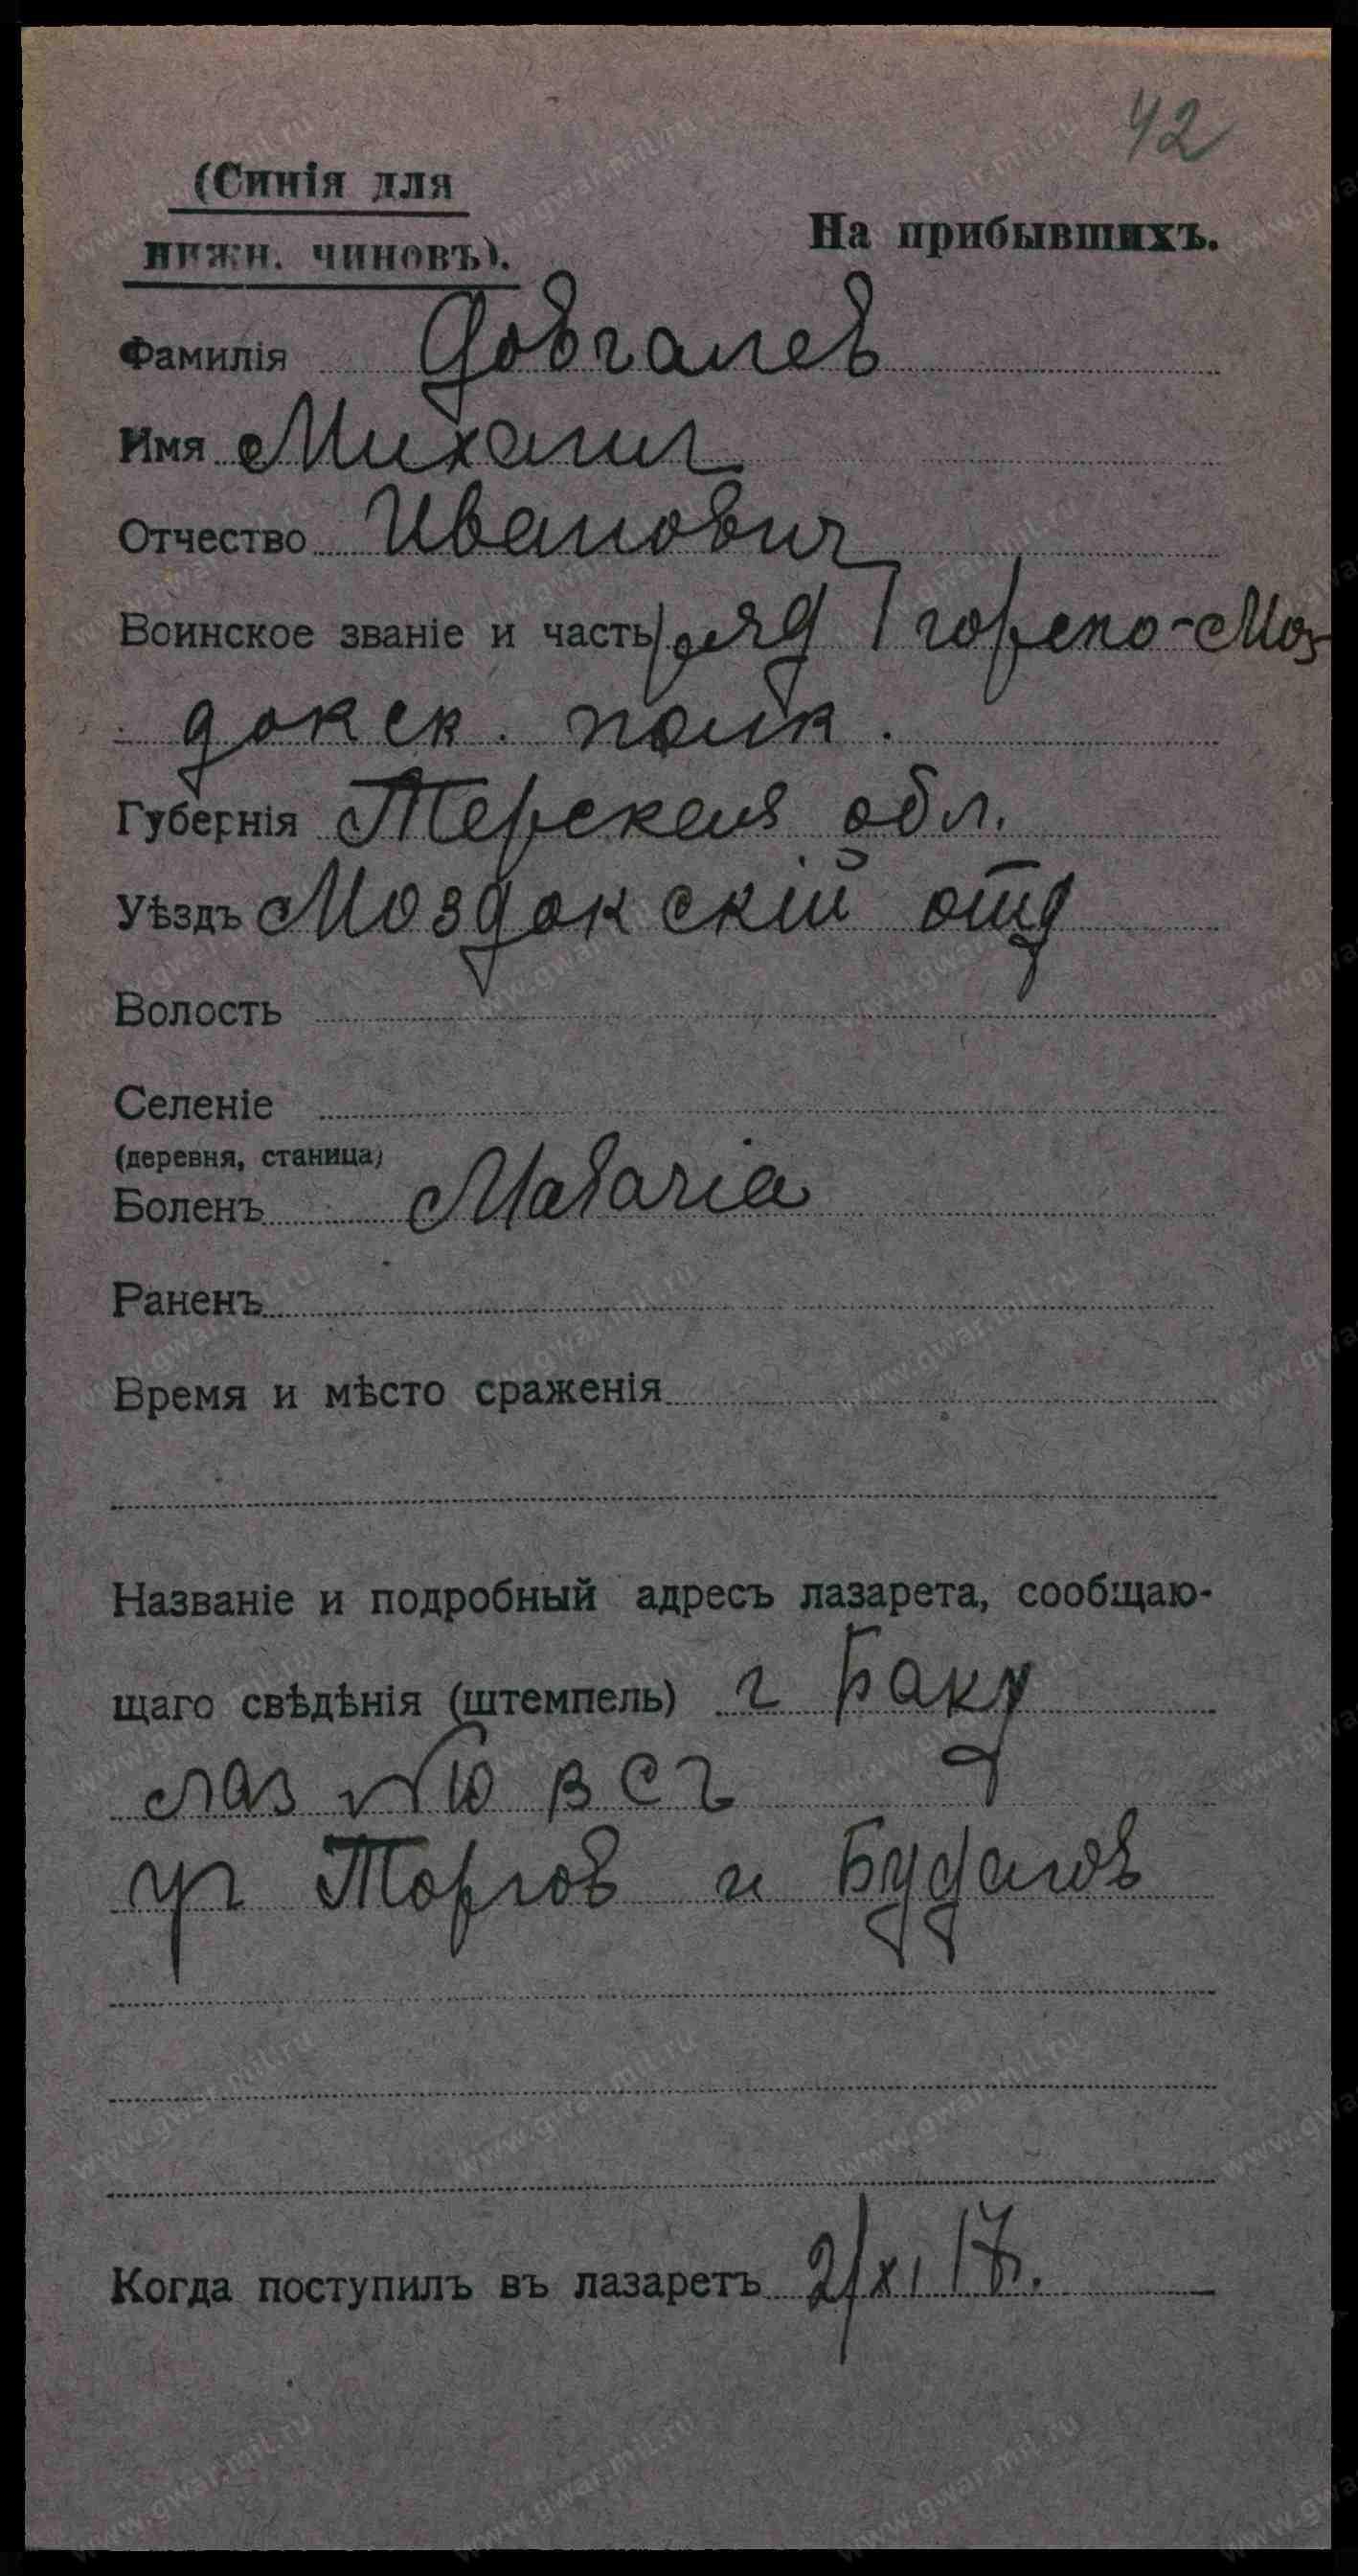 42
(Синія для
нижн. чиновъ).
На прибывшихъ.
Фамилія Довгалев
Имя Михаил
Отчество Иванович
Воинское званіе и часть ряд 1 горско-Моз
докск. полк.
Губернія Терская обл.
Уѣздъ Моздокскій отд
Волость
Селеніе
(деревня, станица)
Боленъ Malaria
Раненъ
Время и мѣсто сраженія
Названіе и подробный адресъ лазарета, сообщаю-
щаго свѣдѣнія (штемпель) г Баку
лаз №10 В С Г
уг Торгов и Будагов
Когда поступилъ въ лазаретъ 2/XI 17г.